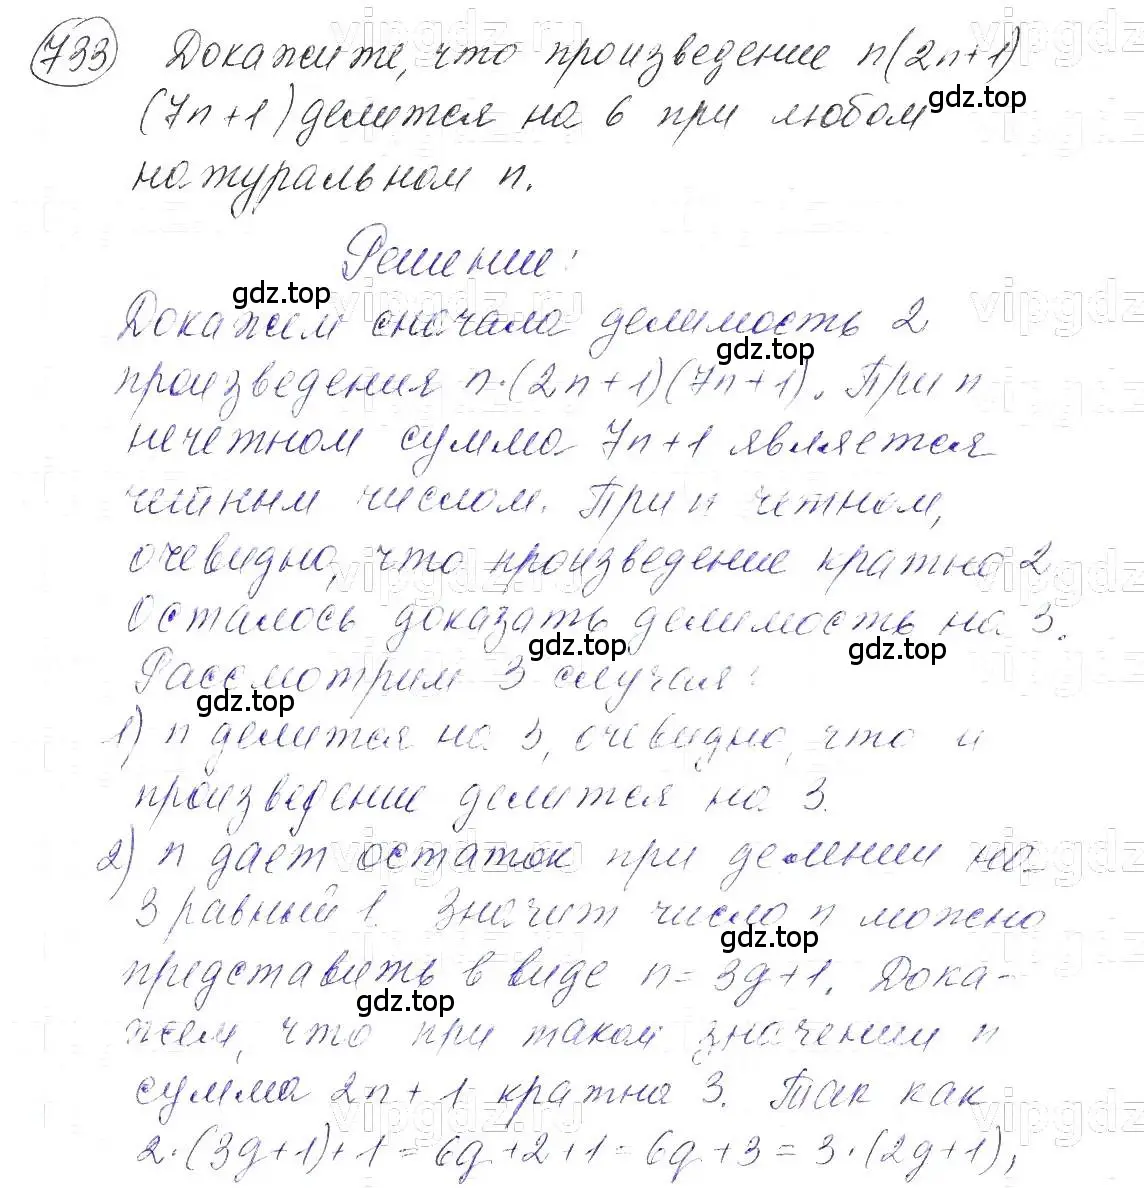 733 Докажите, что произведение n(2n+1)
(7n+1) делится на 6 при любом
натуральном n.
Решение:
Докажем сначала делимость 2
произведения n·(2n+1)(7n+1). При n
нечетном сумма 7n+1 является
четным числом. При n четном,
очевидно, что произведение кратно 2
Осталось доказать делимость на 3.
Рассмотрим 3 случая:
1) n делится на 3, очевидно, что и
произведение делится на 3.
2) n дает остаток при делении на
3 равный 1. Значит число n можно
представить в виде n=3q+1. Дока-
жем, что при таком значении n
сумма 2n+1 кратна 3. Так как
2·(3q+1)+1=6q+2+1=6q+3=3·(2q+1),